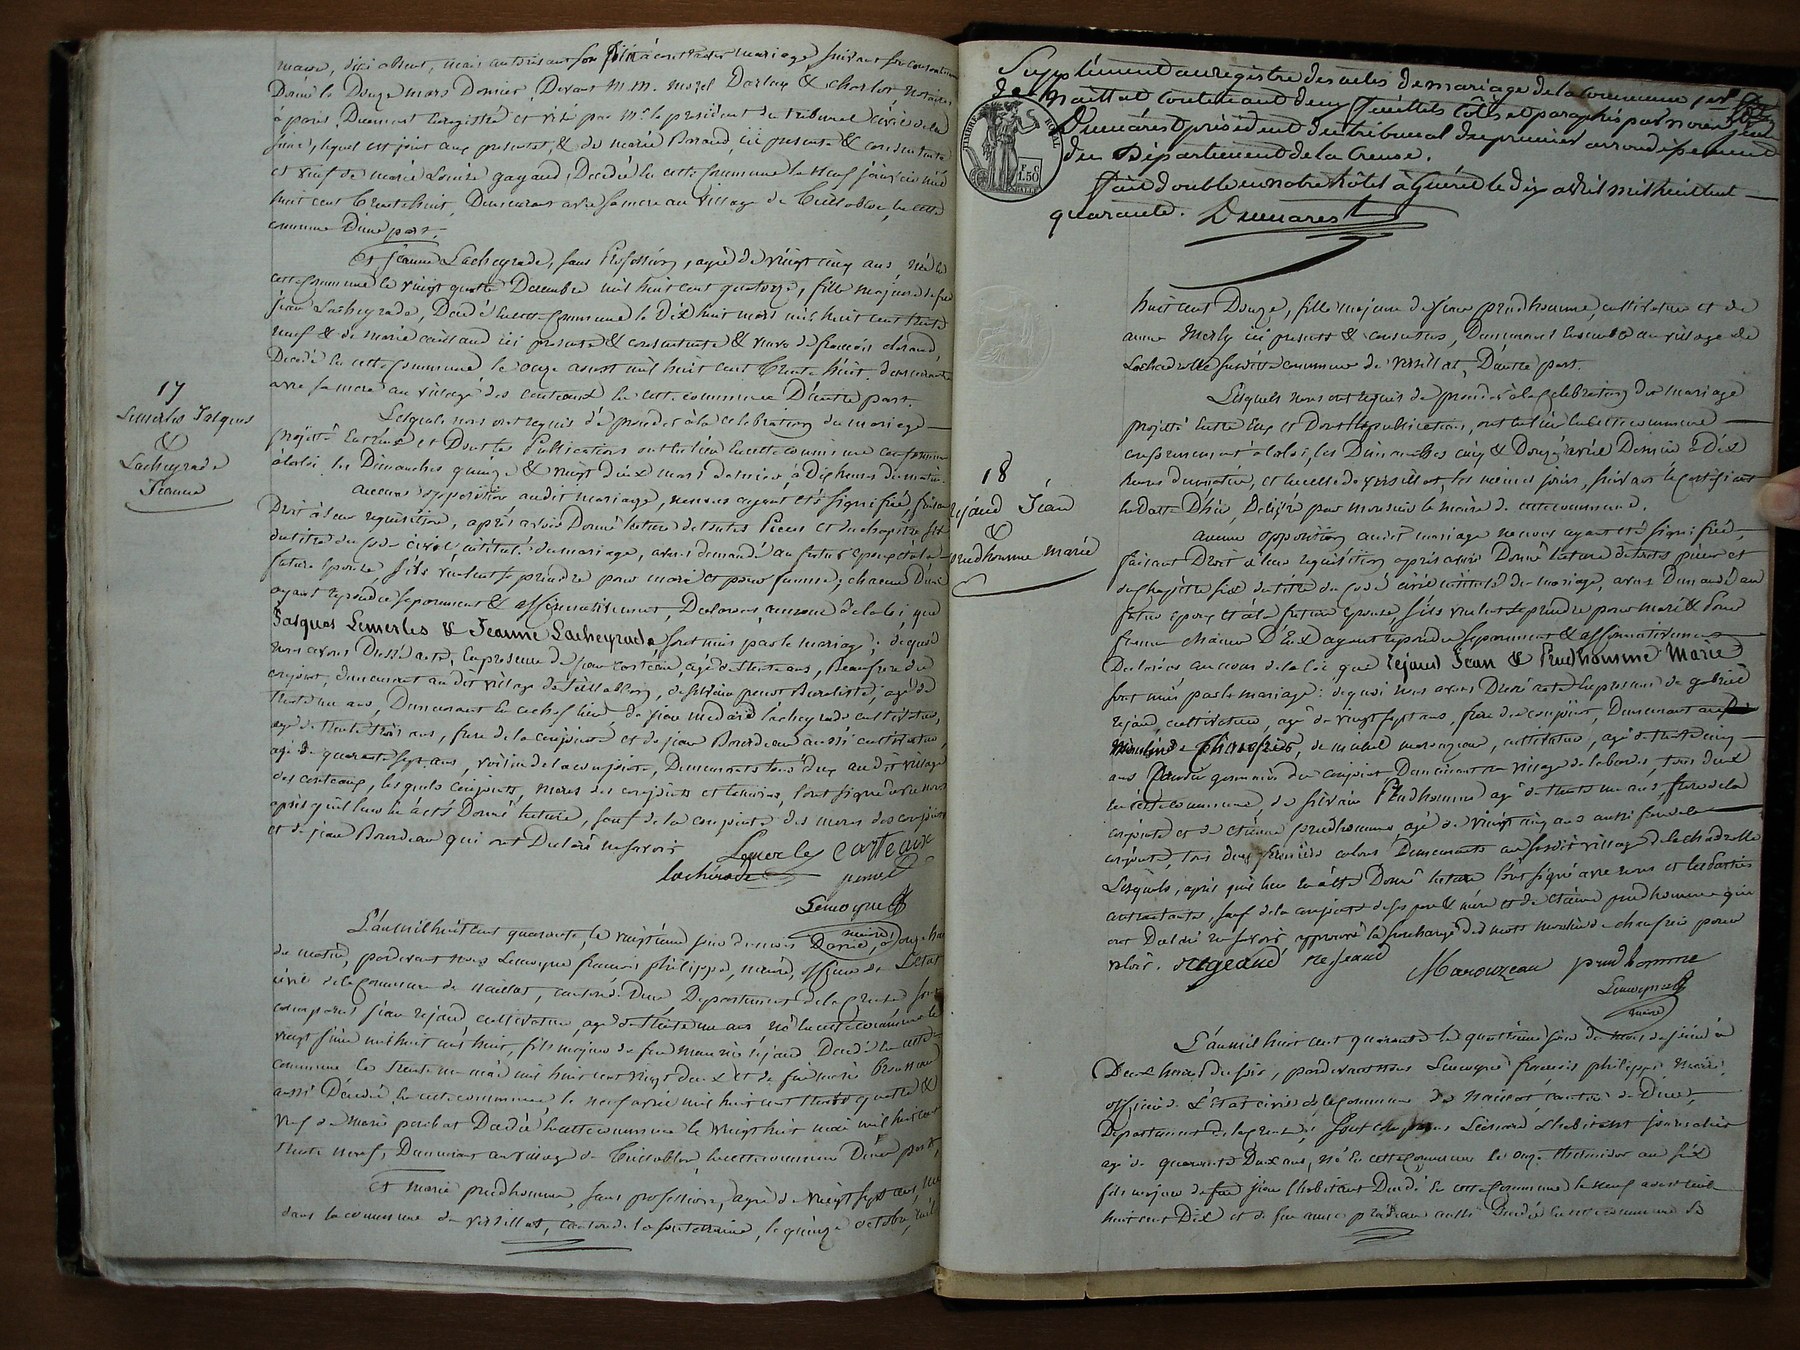 maire, ici absent, mais autorisant son fils à contracter mariage suivant son consentement
Donné le Douze mars Dernier, Devant M.M. morel Darleux & charlot notaires
à paris, Dûment Enregistré et visé par Mr le président du tribunal civil de la
seine, lequel est joint aux présentes, & de marie Baraud, ici présente & consentante
et veuf de marie Louise gayaud, Décédée En cette Commune le neuf janvier mil
huit cent trente huit, Demeurant avec sa mere au village de en cette
commune D'une part.
Et Jeanne Lacheyrade, sans Profession, agée de vingt cinq ans, née En
cette Commune le vingt quatre Decembre mil huit cent quatorze, fille majeure de feu
jean Lacheyrade, Décédé En cette Commune le Dix huit mars mil huit cent trente
neuf & de marie ici presente & consentante & veuve de françois
Decedé En cette Commune le onze aoust mil huit cent trente huit. demeurante
avec sa mere au village des couteaux En cette commune D'autre part.
Lesquels nous ont requis de proceder à la célébration du mariage
projetté Entre eux et Dont les Publications ont eu lieu En cette commune conformement
à la loi, les Dimanches quinze & vingt deux mars dernier, à Dix heures du matin.
aucune opposition audit mariage, ne nous ayant été signifiée, faisant
Droit à leur requisition, après avoir Donné lecture de toutes Pieces et du chapitre six
du titre du code civil, intitulé du mariage, avons demandé au futur époux et à la
future épouse, s'ils veulent se prendre pour mari et pour femme, chacun D'eux
ayant repondu séparement & affirmativement, Declarons, au nom de la loi, que
Jacques Lemerles & Jeanne Lacheyrade, sont unis par le mariage; de quoi
nous avons Dressé acte, En presence de jean carteau, agé de trente ans, Beau frere du
conjoint, demeurant au dit village de de silvain penot Buraliste, agé de
trente un ans, Demeurant En ce chef lieu, de jean medard lacheyrade cultivateur,
agé de trente trois ans, frere de la conjointe et de jean Bourdeau aussi cultivateur,
agé de quarante sept ans, voisin de la conjointe, Demeurants tous deux au dit village
des couteaux, lesquels conjoints, meres des conjoints et temoins, l'ont signé avec nous
après qu'il leur En a été Donné lecture, sauf de la conjointe des meres des conjoints
et de jean Bourdeau qui ont Declaré ne savoir Lemerles carteaux
lacheirade penot
Lemoyne
maire
17
Lemerles Jacques
&
Lacheyrade
Jeanne
L'an mil huit cent quarante, le vingtieme jour du mois D'avril, à onze heures
du matin, pardevant nous Lemoyne françois philippe, maire, officier de L'état
civil de la Commune de naillat, canton de Dun Departement de la Creuse sont
comparus jean rejaud cultivateur, agé de trente un ans né En cette commune le
vingt mil huit cent huit, fils majeur de feu maurice rejaud Decedé En cette
commune le trente un mai mil huit cent vingt deux et de feu marie Brousse
aussi Decedée En cette commune, le neuf avril mil huit cent trente quatre &
veuf de Marie Decedée En cette commune le vingt huit mai mil huit cent
trente neuf, Demeurant au village de En cette commune D'une part,
Et marie prudhomme, sans profession, agée de vingt sept ans, née
dans la commune de versillat, canton de la souterraine, le quinze octobre mil
Supplément au registre des actes de mariage de la Commune
de Naillat contenant deux feuillets côtés et paraphés par nous
Dumarest président du tribunal du premier arrondissement
du Département de la Creuse.
Fait double en notre hôtel à Guéret le dix avril mil huit cent
quarante. Dumarest
TIMBRE ROYAL
1.50
huit cent Douze, fille majeure de jean prudhomme, cultivateur et de
anne Merly ici présents & consentans, Demeurant Ensemble au village de
Lachadrolle susditte commune de versillat, D'autre part.
Lesquels nous ont requis de proceder à la célébration du mariage
projetté Entre Eux et Dont les publications, ont eu lieu En cette commune
conformement à la loi, les Dimanches cinq & Douze avril Dernier à Dix
heures du matin, et En celle de versillat les mêmes jours, suivant le certificat
En datte D'hier, Delivré par monsieur le maire de cette commune.
aucune opposition audit mariage ne nous ayant été signifiée,
faisant Droit à leur requisition après avoir Donné lecture de toutes pieces et
du chapitre six du titre du code civil intitulé du mariage, avons Demandé au
futur époux et à la future épouse, s'ils veulent se prendre pour mari & pour
femme chacun D'Eux ayant repondu séparement & affirmativement
Declarons au nom de la loi que rejaud Jean & Prudhomme Marie
sont unis par le mariage: de quoi nous avons Dressé acte En presence de gabriel
rejaud, cultivateur, agé de vingt sept ans, frere du conjoint, Demeurant au
Moulin de Chanfreis, de michel marouzeau, cultivateur, agé de trente cinq
ans Cousin germain du conjoint Demeurant au village de labordes, tous deux
En cette commune, de silvain Prudhomme agé de trente un ans, frere de la
conjointe et de etienne prudhomme, agé de vingt cinq ans aussi frere de la
conjointe, tous deux colons Demeurants au susdit village de lachadrolle
Lesquels, après qu'il leur En a été Donné lecture l'ont signé avec nous et les parties
contractantes, sauf de la conjointe de ses pere & mere et de etienne prudhomme qui
ont Declaré ne savoir, approuvé la surcharge des mots moulin de chanfreis pour
valoir. rejeaud rejeaud Marouzeau prudhomme
Lemoyne
maire
18
rejaud Jean
&
prudhomme marie
L'an mil huit cent quarante le quatrieme jour du mois de à
Deux heures du soir, pardevant nous Lemoyne françois philippe Maire,
officier de L'Etat civil de la Commune de Naillat canton de Dun,
Departement de la Creuse, sont comparus Léonard L'habitant journalier
agé de quarante Deux ans, né En cette Commune le onze thermidor an six
fils majeur de feu jean l'habitant Decedé En cette Commune le neuf aoust mil
huit cent Dix et de feu anne aussi Decedée En cette commune le